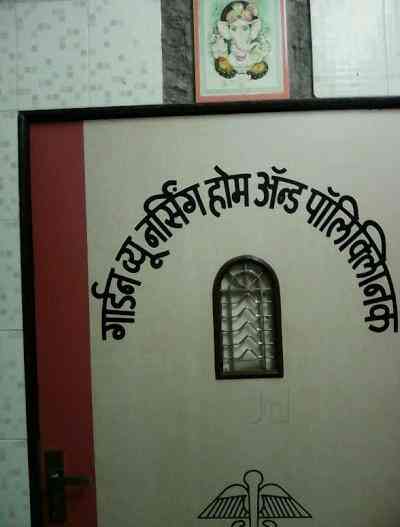 गार्डन व्यू नर्सिंग होम अॅन्ड पॉलिक्लिनिक